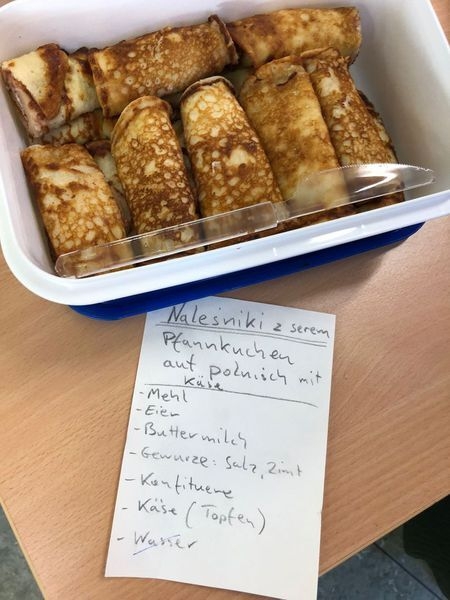 Naleśniki z serem
Pfannkuchen
auf polnisch mit
Käse
- Mehl
- Eier
- Buttermilch
- Gewürze: Salz, Zimt
- Konfituere
- Käse (Topfen)
- Wasser